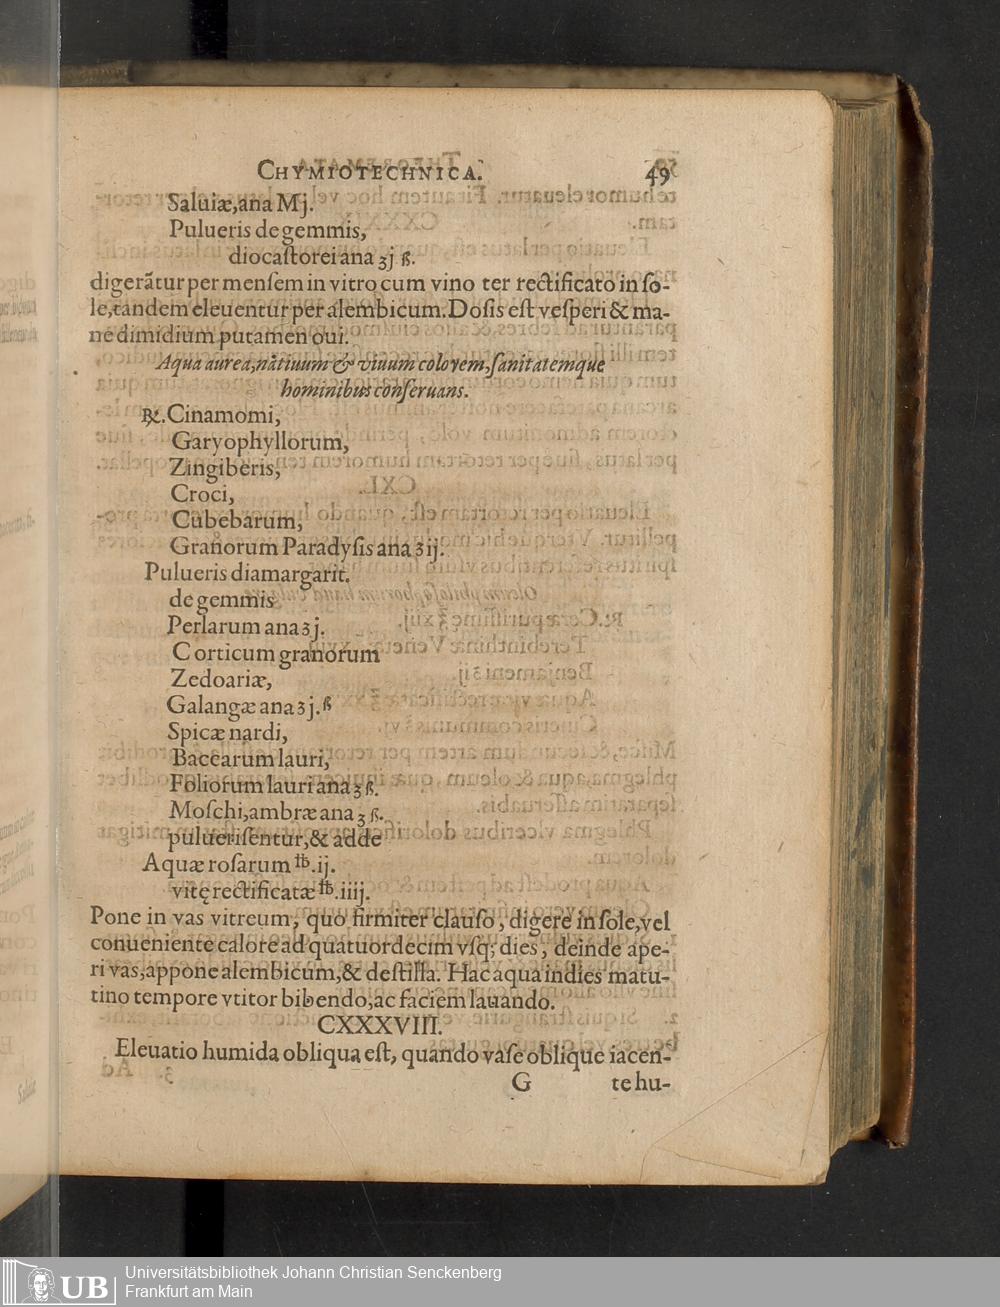 CHYMIOTECHNICA. 49
Saluiæ,ana Mj.
Pulueris de gemmis,
diocaſtorei ana ʒj ß.
digerãtur per menſem in vitro cum vino ter rectificato in ſo-
le,tandem eleuentur per alembicum. Doſis eſt veſperi & ma-
ne dimidium putamen oui.
Aqua aurea,natiuum & viuum colorem,ſanitatemque
hominibus conſeruans.
℞. Cinamomi,
Garyophyllorum,
Zingiberis,
Croci,
Cubebarum,
Granorum Paradyſis ana ʒij.
Pulueris diamargarit.
de gemmis
Perlarum ana ʒj.
Corticum granorum
Zedoariæ,
Galangæ ana ʒj.ß
Spicæ nardi,
Baccarum lauri,
Foliorum lauri ana ʒß.
Moſchi,ambræ ana ʒ ß.
pulueriſentur,& adde
Aquæ roſarum ℔.ij.
vitę rectificatæ ℔.iiij.
Pone in vas vitreum, quo firmiter clauſo, digere in ſole,vel
conueniente calore ad quatuordecim vſq; dies, deinde ape-
ri vas,appone alembicum,& deſtilla. Hac aqua indies matu-
tino tempore vtitor bibendo,ac faciem lauando.
CXXXVIII.
Eleuatio humida obliqua eſt, quando vaſe oblique iacen-
G te hu-
UB Universitätsbibliothek Johann Christian Senckenberg
Frankfurt am Main